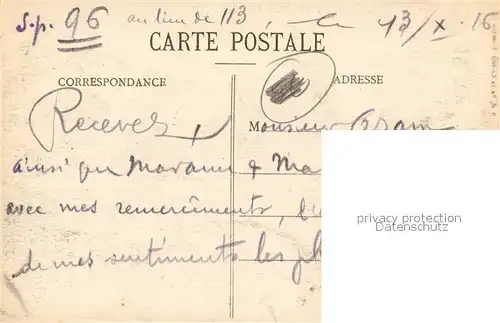 S.p. 96 au lieu de 113, le 13/X. 16
CARTE POSTALE
CORRESPONDANCE
ADRESSE
Recevez
Monsieur
ainsi que Madame & Ma
avec mes remerciments, l'
de mes sentiments les pl
privacy protection
Datenschutz